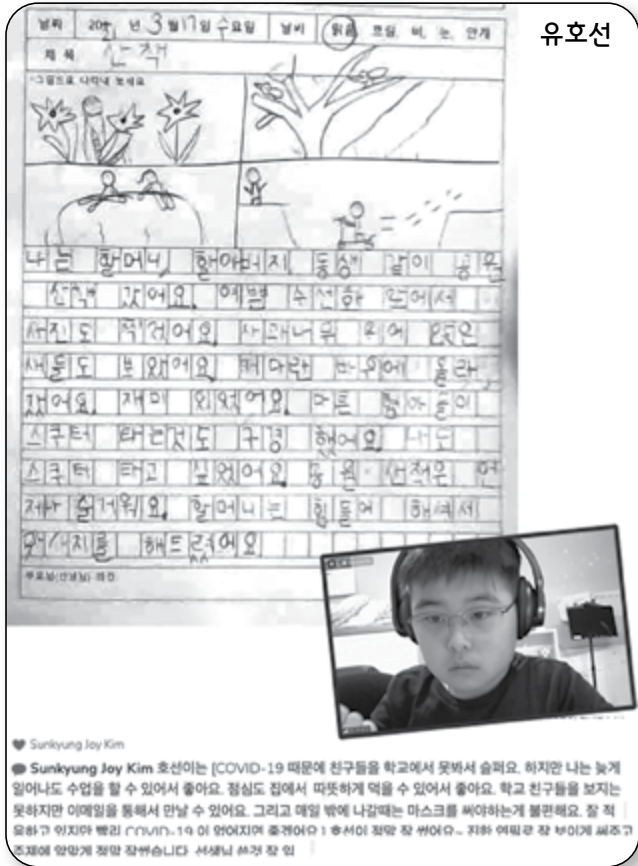 유호선
날짜 202 년 3월 17일 수요일 날씨 맑음 흐림, 비, 눈, 안개
제목 산책
그림으로 나타내 보세요
나는 할머니, 할아버지 동생 같이 공원
산책 갔어요. 예쁜 수선화 앞에서
사진도 찍었어요. 사과나무 위에 앉은
새들도 보았어요. 커다란 바위에 올라
갔어요. 재미 있었어요. 다른 형아들이
스쿠터 타는것도 구경 했어요. 나도
스쿠터 타고 싶었어요. 공원 산책은 언
제나 즐거워요. 할머니는 힘들어 하셔서
해드렸어요
부모님(선생님) 의견
Sunkyung Joy Kim
Sunkyung Joy Kim 호선이는 [COVID-19 때문에 친구들을 학교에서 못봐서 슬퍼요. 하지만 나는 늦게
일어나도 수업을 할 수 있어서 좋아요. 점심도 집에서 따뜻하게 먹을 수 있어서 좋아요. 학교 친구들을 보지는
못하지만 이메일을 통해서 만날 수 있어요. 그리고 매일 밖에 나갈때는 마스크를 써야하는게 불편해요. 잘 적
응하고 있지만 빨리 COVID-19 이 없어지면 좋겠어요.] 호선이 정말 잘 썼어요~ 진한 연필로 잘 보이게 써주고
주제에 알맞게 정말 잘썼습니다. 선생님 쓴것 잘